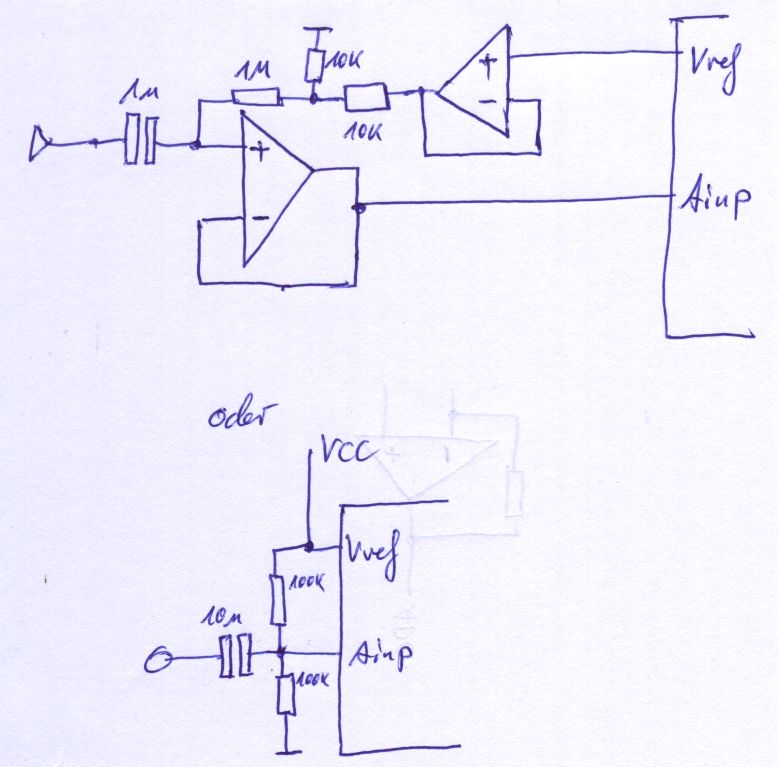 10K
1M
1µ
10K
+
-
Vref
+
-
Ainp
oder
VCC
Vref
100K
10µ
Ainp
100K